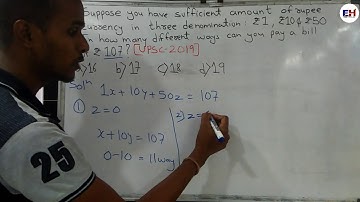 EH
Suppose you have sufficient amount of rupee
currency in three denomination: ₹1, ₹10 & ₹50
how many different ways can you pay a bill
₹107? [UPSC-2019]
16 b) 17 c) 18 d) 19
Solⁿ 1x + 10y + 50z = 107
① z = 0
2) z =
x + 10y = 107
0-10 = 11 way